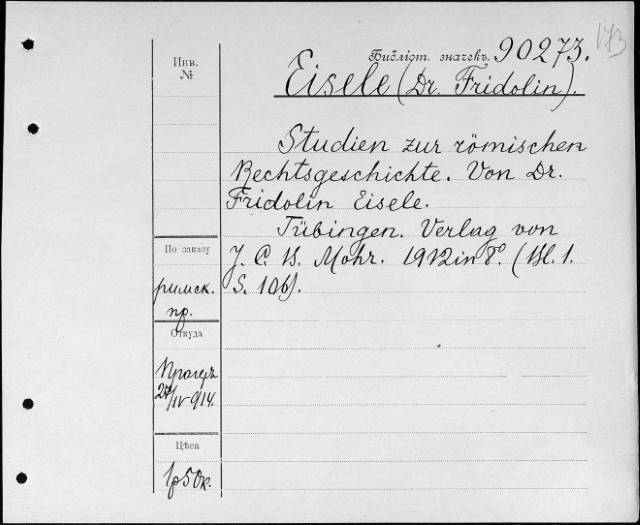 173
Библіот. значекъ. 90273.
Eisele (Dr. Fridolin).
Studien zur römischen
Rechtsgeschichte. Von Dr.
Fridolin Eisele.
Tübingen. Verlag von
J. C. B. Mohr. 1912 in 8º. (Bl. 1.
S. 106).
Инв.
№
По заказу
римск.
пр.
Откуда
Прагеръ
27/IV-914.
Цѣна
1р50к.